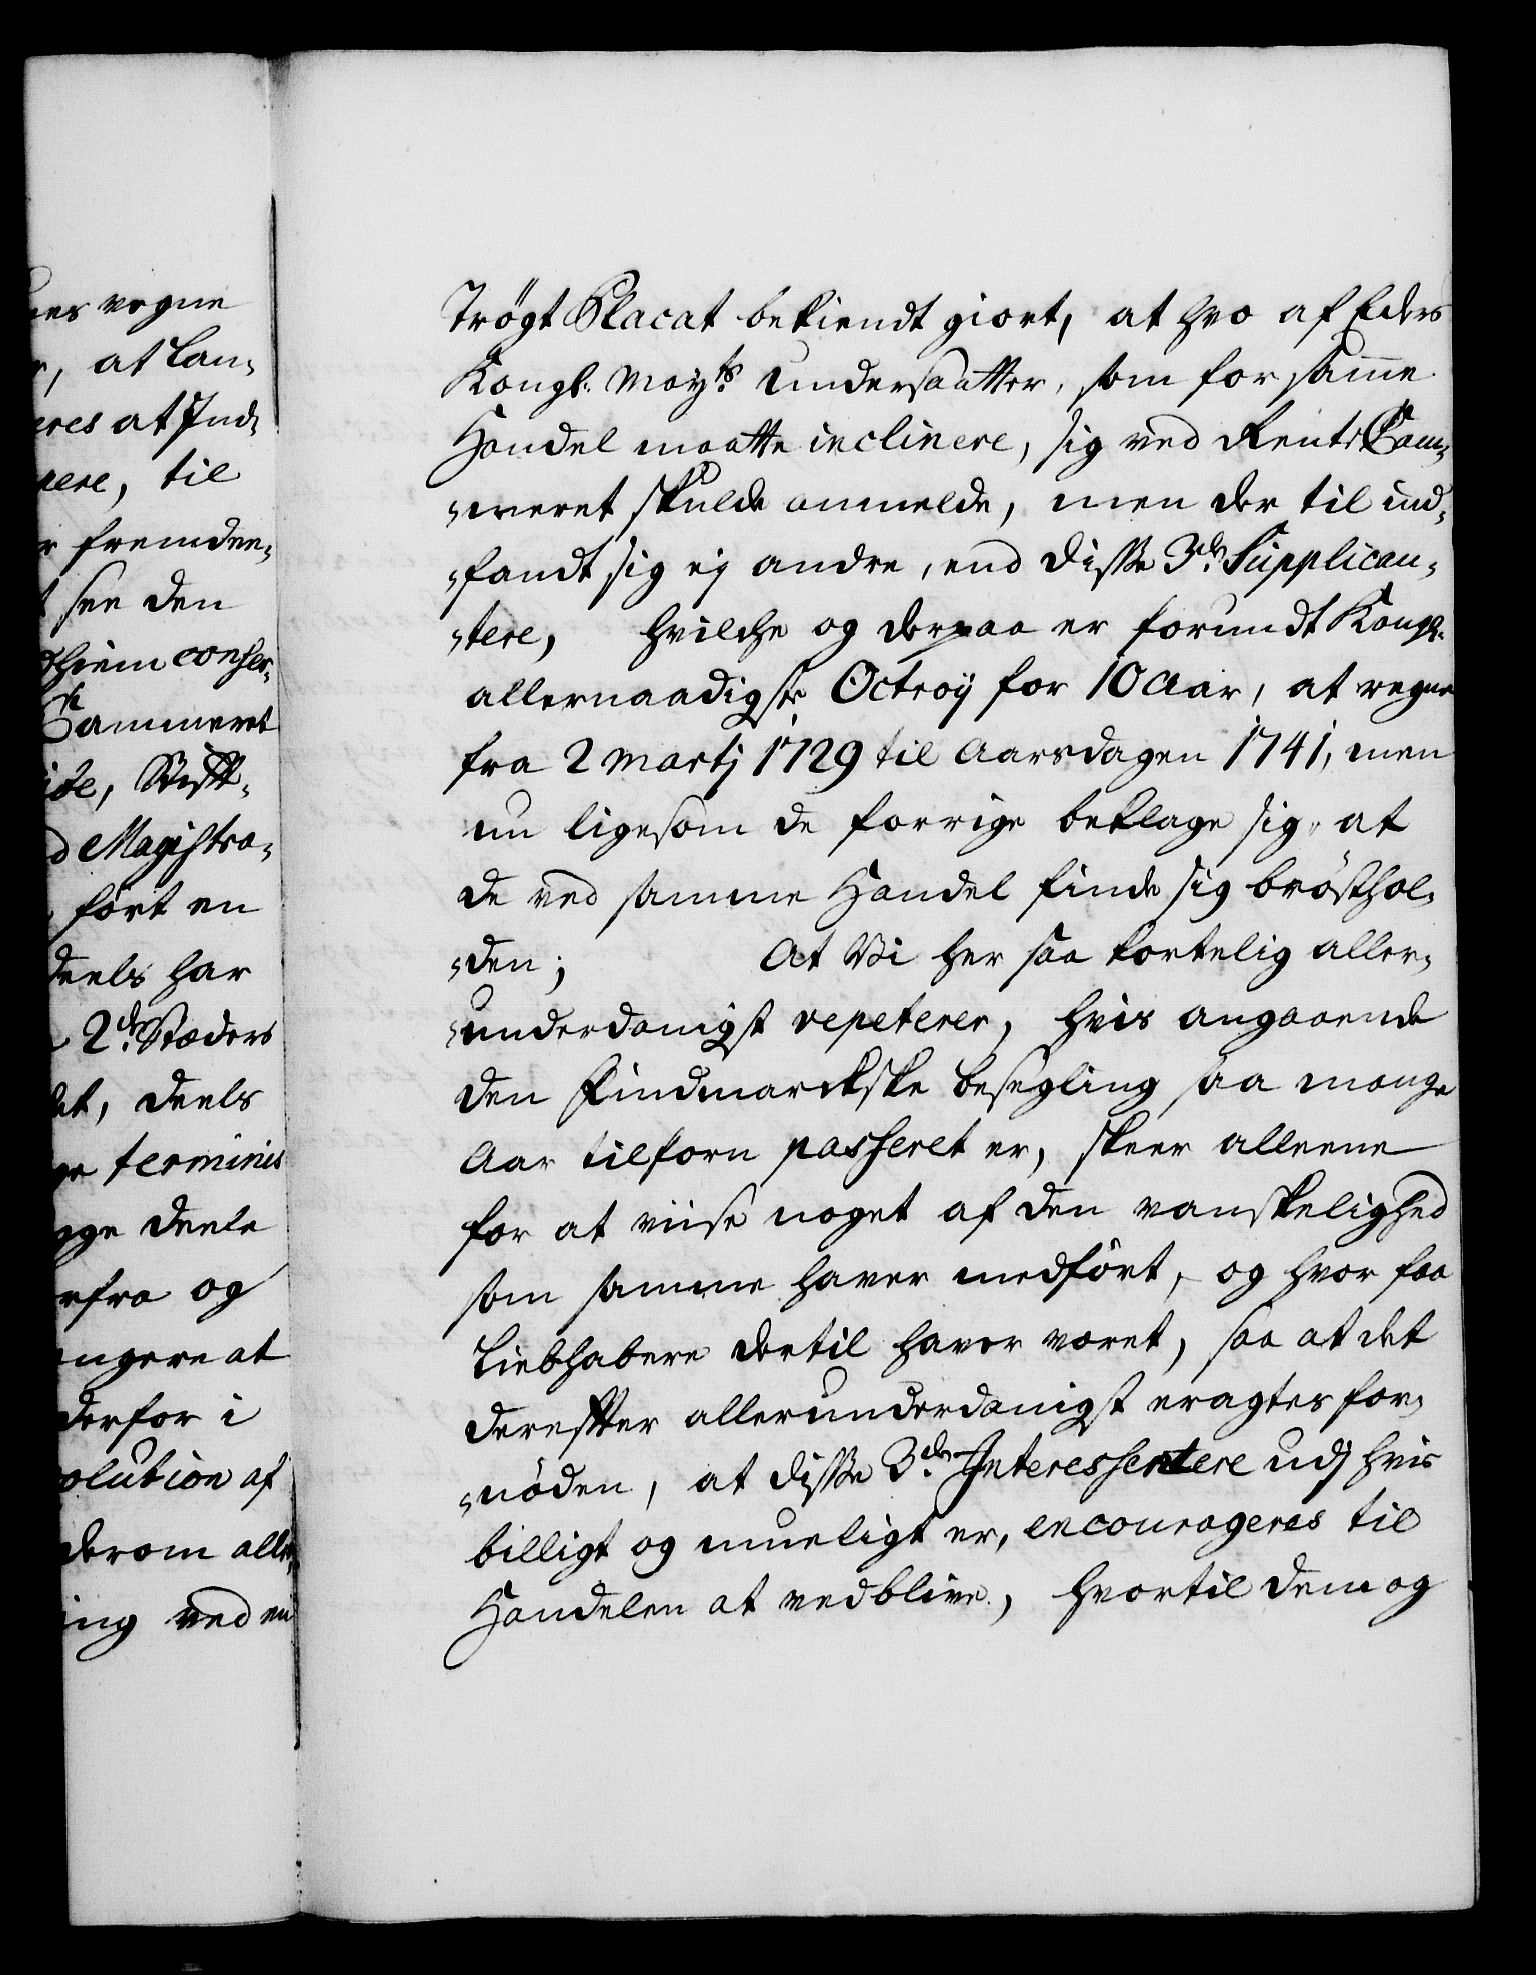 nes vegne
r, at Lan-
eres at Ind-
nere, til
r fremdee-
t see den
hiem confer-
Cammeret
ide, Stift-
d Magistra-
ført en
deels har
2de Stæders
et, deels
ge terminis
gge deele
rfra og
ngere at
derfor i
olution af
derom aller-
ing ved en
Trøgt Placat bekiendt giort, at hvo af Eders
Kongl. Mayts Undersaatter, som for samme
Handel maatte inclinere, sig ved Rente Cam-
meret skulde anmelde, men der til ind-
fandt sig ej andre, end disse 3de Supplican-
tere, hvilche og derpaa er forundt Kongl.
allernaadigste Octroÿ for 10 Aar, at regne
fra 2 Martj 1729 til Aarsdagen 1741, men
nu ligesom de forrige beklage sig, at
de ved samme Handel finde sig brøsthol-
den; At Vi her saa kortelig aller-
underdanigst repeterer, hvis angaaende
den Findmarckske besegling saa mange
Aar tilforn passeret er, skeer alleene
for at viise noget af den vanskelighed
som samme haver medført, og hvor faa
Liebhabere dertil haver været, saa at det
derefter allerunderdanigst eragtes for-
nøden, at disse 3de Interessentere udj hvis
billigt og mueligt er, encourageres til
Handelen at vedblive, hvortil dem og